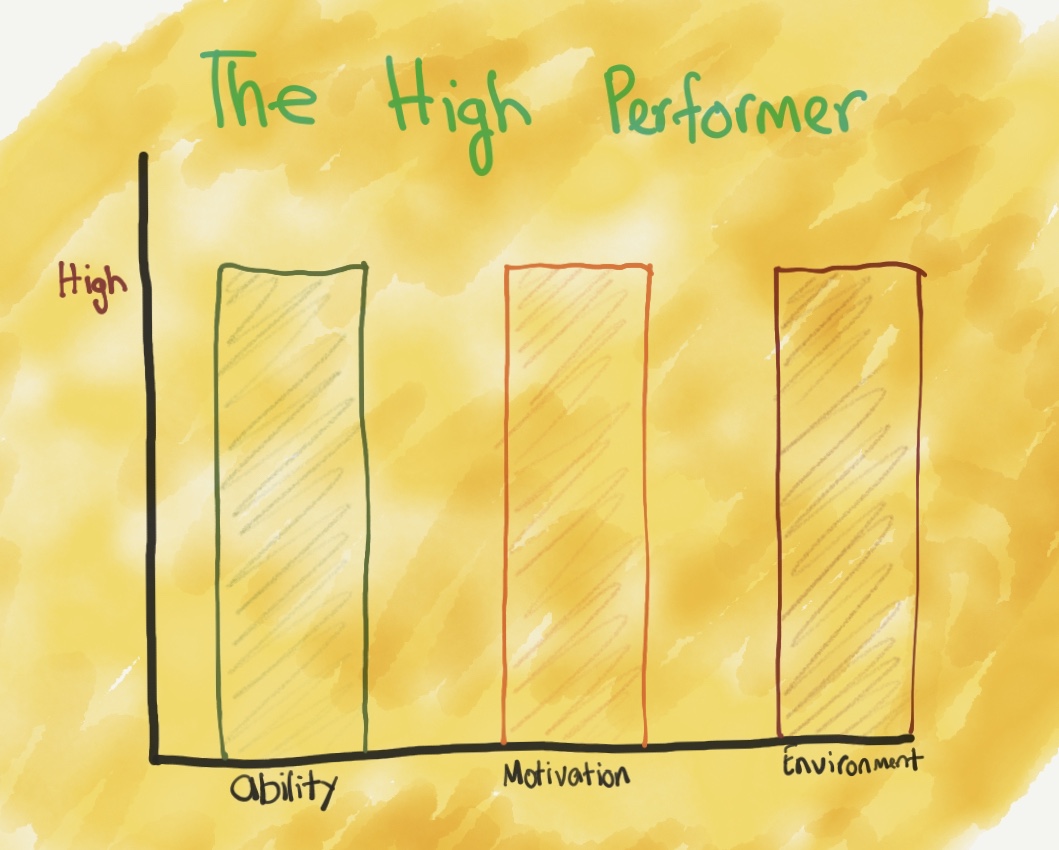 The High Performer
High
ability
Motivation
Environment